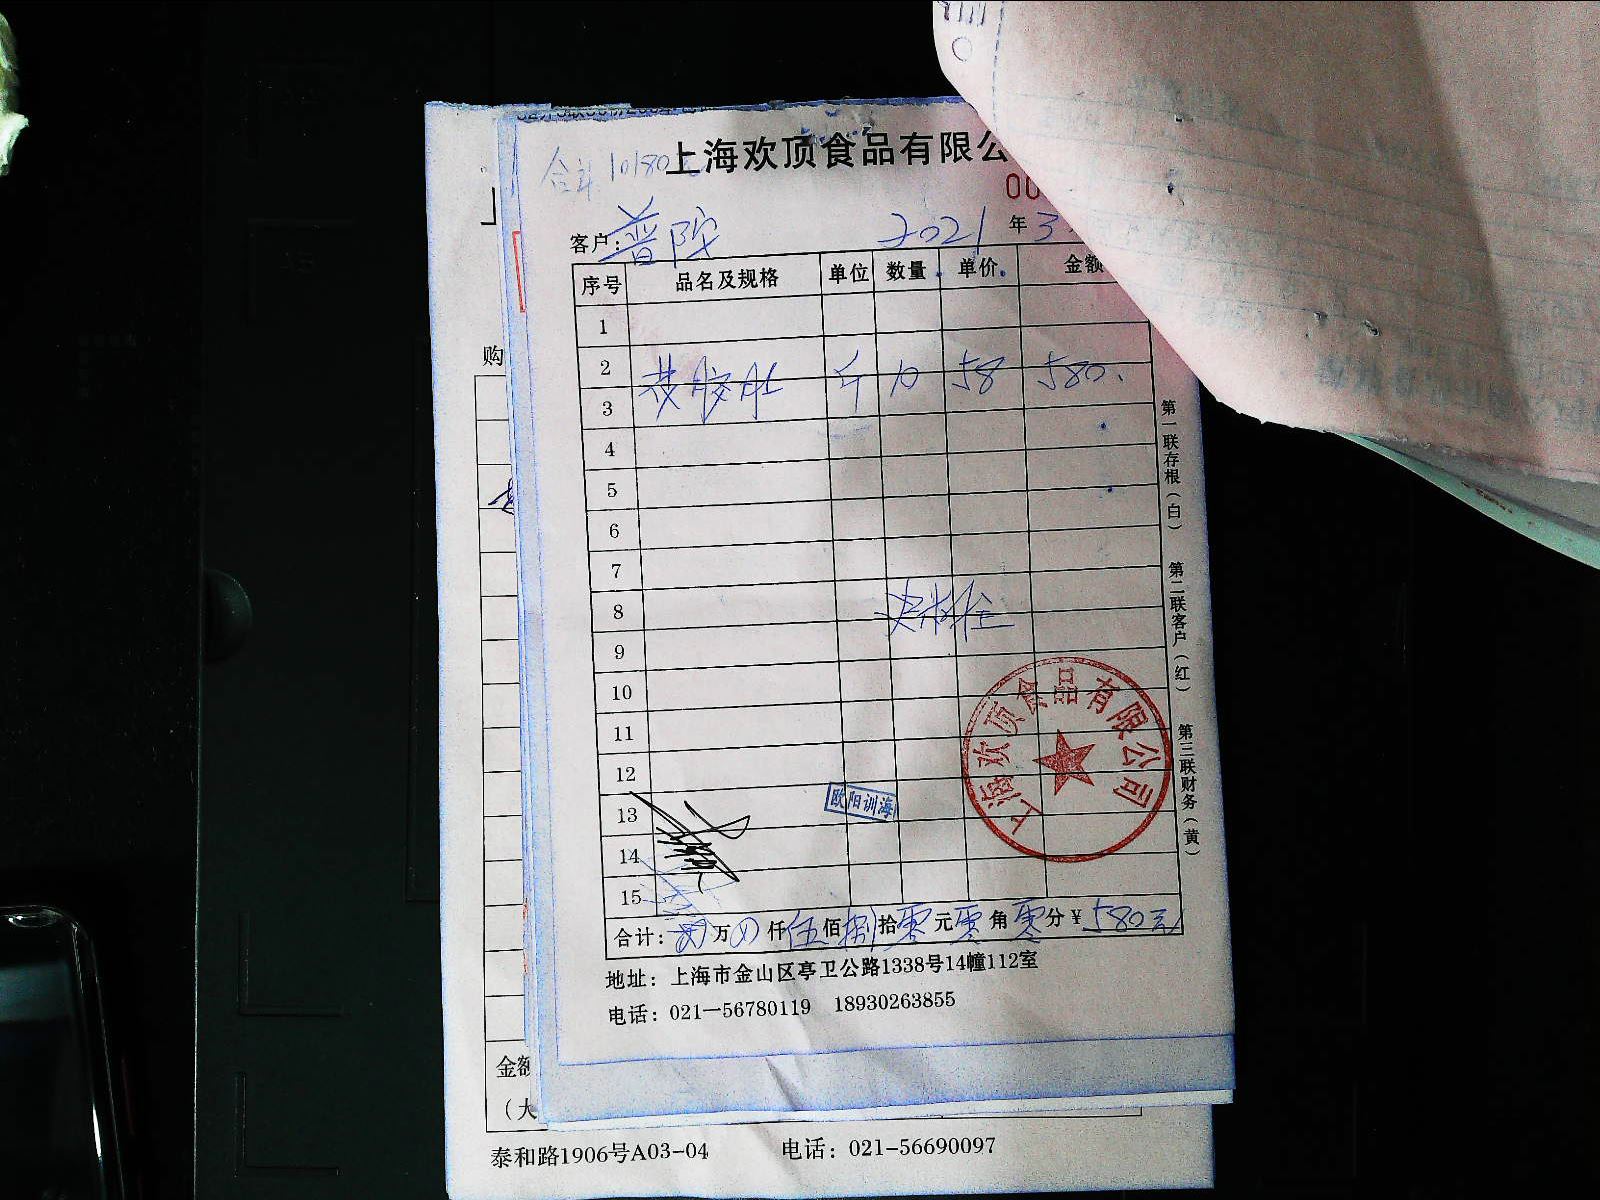 上海欢顶食品有限公
合计 10180元
00
客户: 普陀 2021 年 3
序号 品名及规格 单位 数量 单价 金额
1
2
斤 10 58 580.
3
4
5
6
7
8
9
10
11
12
13
14
15
欧阳训海
上海欢顶食品有限公司
合计: 万 仟 伍 佰 捌 拾 零 元 零 角 零 分 ¥ 580元
地址: 上海市金山区亭卫公路1338号14幢112室
电话: 021-56780119 18930263855
第一联存根(白) 第二联客户(红) 第三联财务(黄)
购
金额
(大
泰和路1906号A03-04 电话: 021-56690097